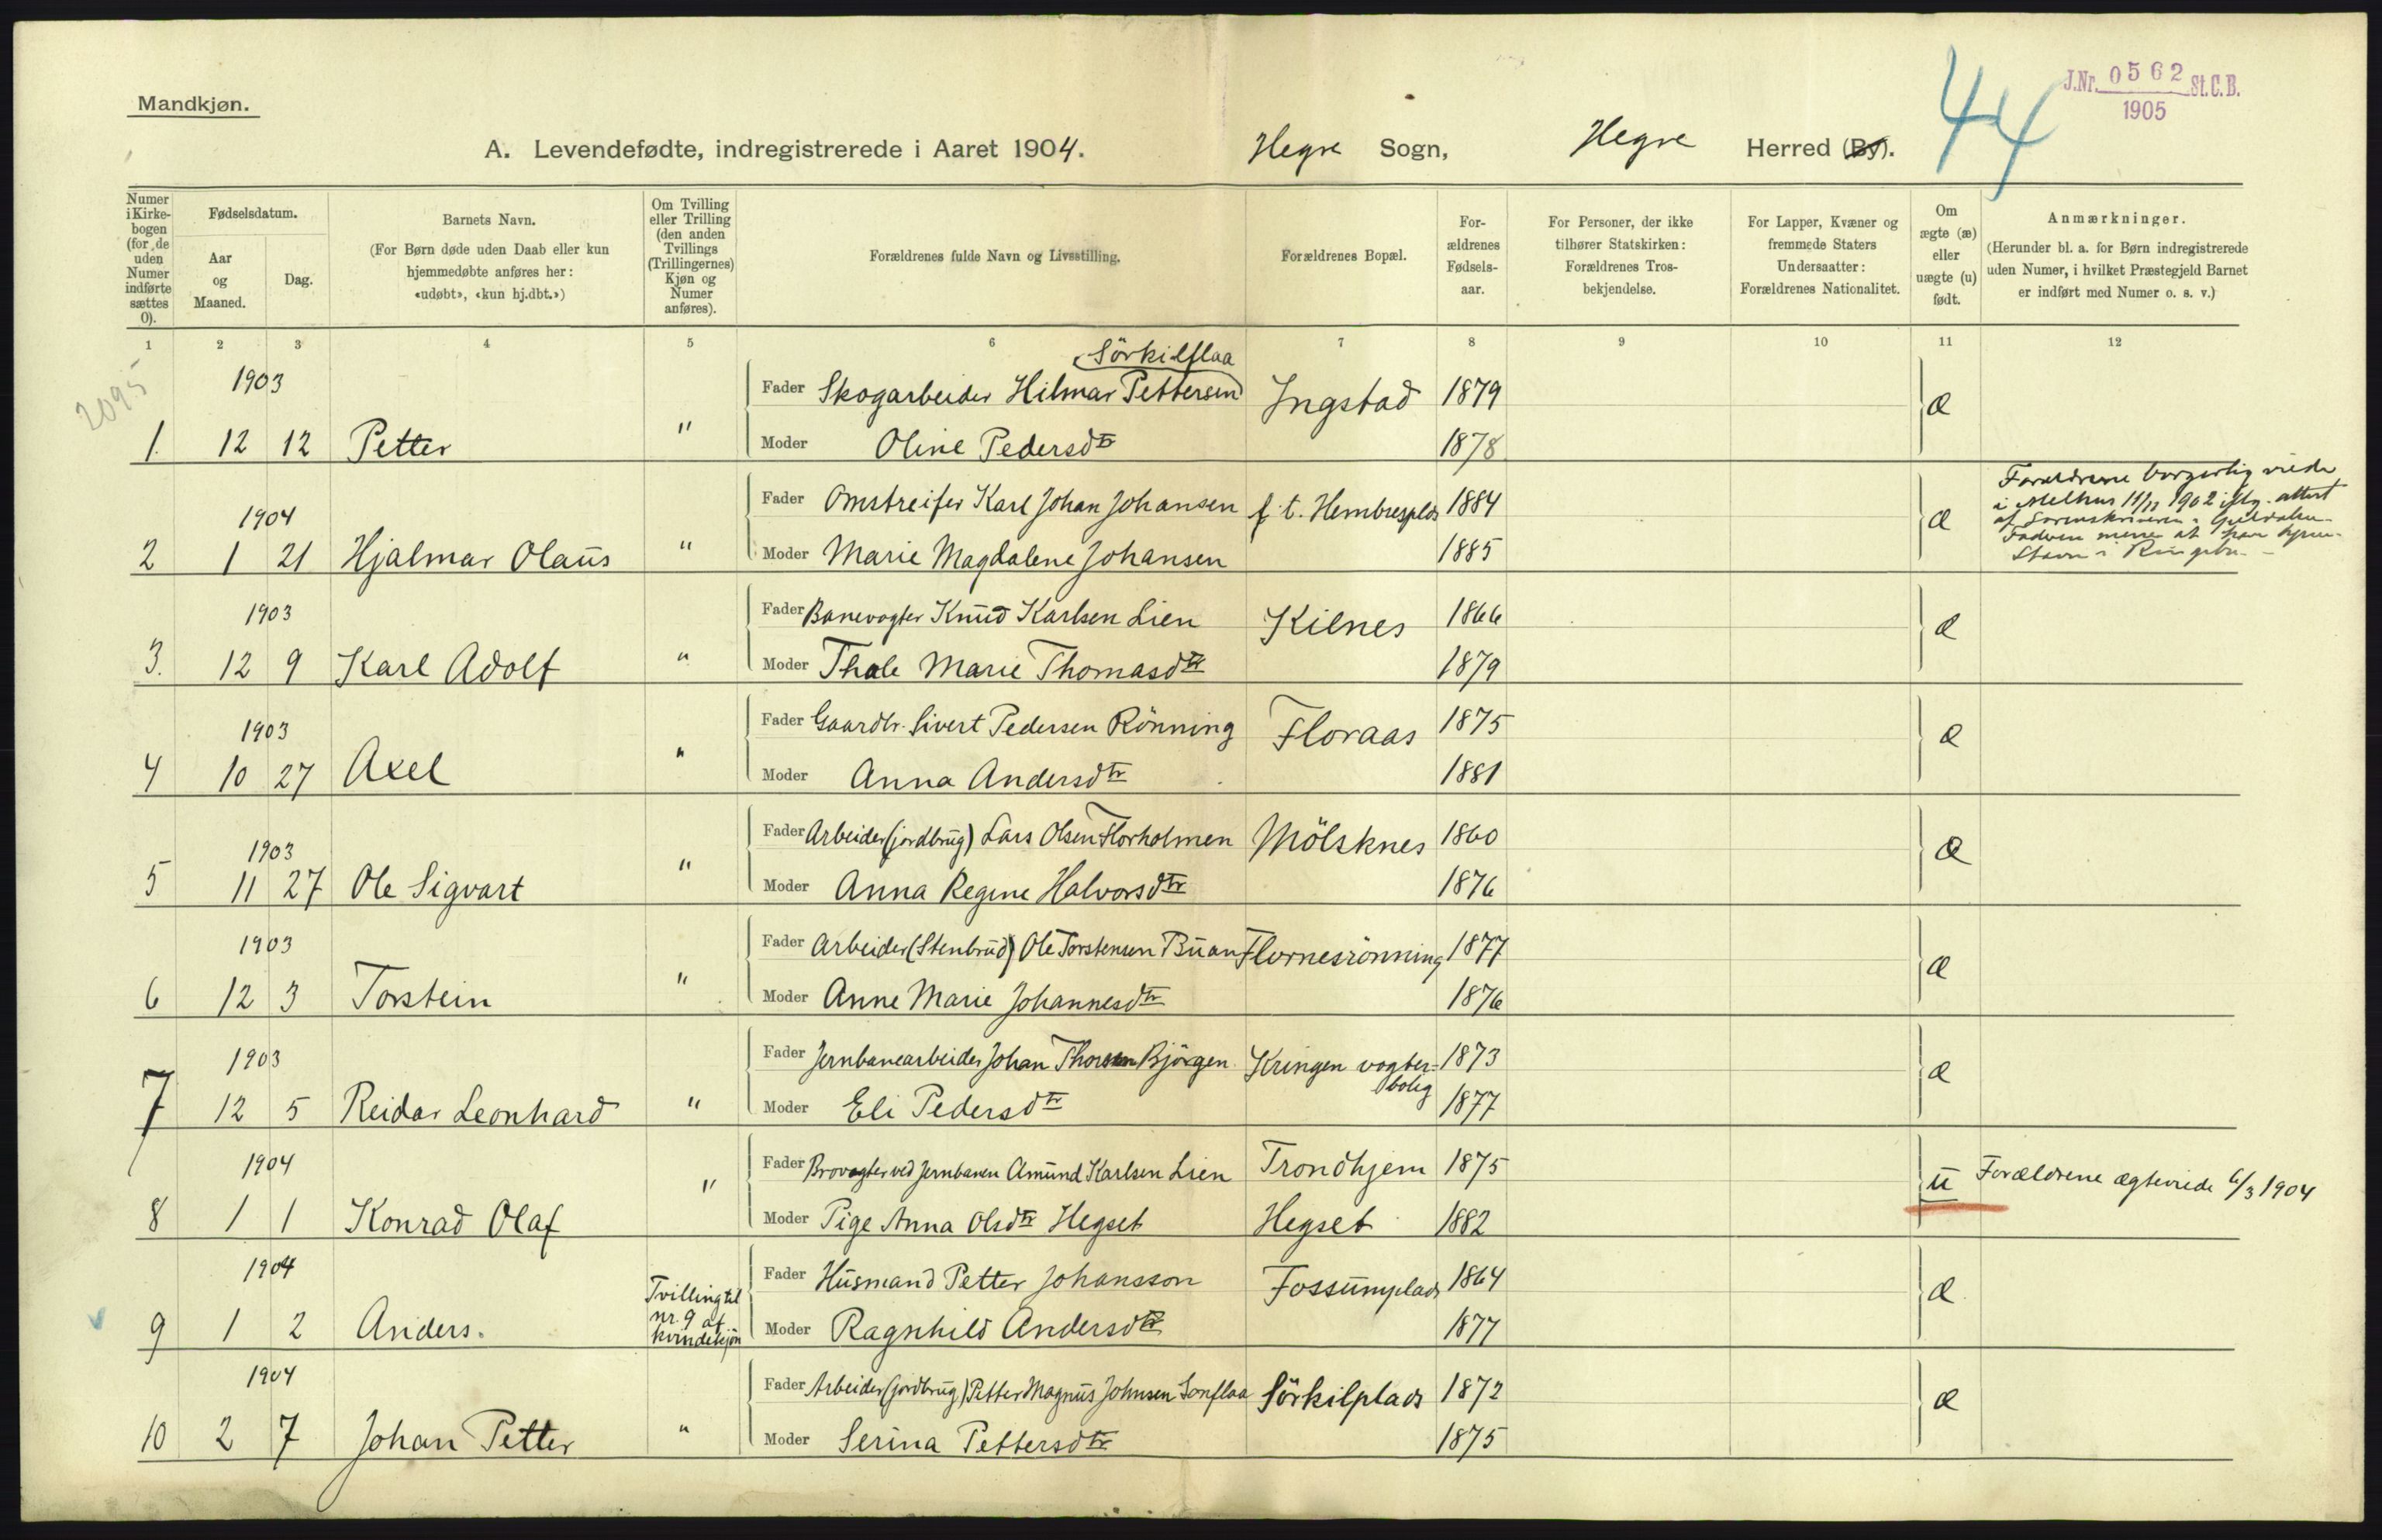 Mandkjøn.
44
J.Nr. 0562 St.C.B.
1905
A. Levendefødte, indregistrerede i Aaret 1904. Hegre Sogn, Hegre Herred (By).
Numer i Kirke-bogen (for de uden Numer indførte sættes 0).
Fødselsdatum.
Aar og Maaned.
Dag.
Barnets Navn.
(For Børn døde uden Daab eller kun hjemmedøbte anføres her: «udøbt», «kun hj.dbt.»)
Om Tvilling eller Trilling (den anden Tvillings (Trillingernes) Kjøn og Numer anføres).
Forældrenes fulde Navn og Livsstilling.
Forældrenes Bopæl.
For-ældrenes Fødsels-aar.
For Personer, der ikke tilhører Statskirken: Forældrenes Tros-bekjendelse.
For Lapper, Kvæner og fremmede Staters Undersaatter: Forældrenes Nationalitet.
Om ægte (æ) eller uægte (u) født.
Anmærkninger.
(Herunder bl. a. for Børn indregistrerede uden Numer, i hvilket Præstegjeld Barnet er indført med Numer o. s. v.)
1 2 3 4 5 6 7 8 9 10 11 12
2095
Sörkilflaa
1903 Fader Skogarbeider Hilmar Pettersen Ingstad 1879 æ
1. 12 12 Petter " Moder Oline Pedersdtr 1878
1904 Fader Omstreifer Karl Johan Johansen f. t. Hembresplds 1884 æ
2 1 21 Hjalmar Olaus " Moder Marie Magdalene Johansen 1885
Forældrene borgerlig viede
i Melhus 11/12 1902 iflg. attest
af Sorenskriveren i Guldalen
Faderen mener at have hjem-
stavn i Ringebu.
1903 Fader Banevogter Knud Karlsen Lien Kilnes 1866 æ
3. 12 9 Karl Adolf " Moder Thale Marie Thomasdtr 1879
1903 Fader Gaardbr. Sivert Pedersen Rönning Floraas 1875 æ
4 10 27 Axel " Moder Anna Andersdtr 1881
1903 Fader Arbeider (jordbrug) Lars Olsen Florholmen Mölsknes 1860 æ
5 11 27 Ole Sigvart " Moder Anna Regine Halvorsdtr 1876
1903 Fader Arbeider (Stenbrud) Ole Torstensen Buan Flornesrönning 1877 æ
6 12 3 Torstein " Moder Anne Marie Johannesdtr 1876
1903 Fader Jernbanearbeider Johan Thorsen Björgen Kringen vogter- 1873 æ
bolig
7 12 5 Reidar Leonhard " Moder Eli Pedersdtr 1877
1904 Fader Brovogter ved Jernbanen Amund Karlsen Lien Trondhjem 1875 u Forældrene ægteviede 6/3 1904
8 1 1 Konrad Olaf " Moder Pige Anna Olsdtr Hegset Hegset 1882
1904 Fader Husmand Petter Johansson Fossumplads 1864 æ
9 1 2 Anders. Tvilling til nr. 9 af kvindekjön Moder Ragnhild Andersdtr 1877
1904 Fader Arbeider (jordbrug) Petter Magnus Johnsen Sonflaa Sörkilplads 1872 æ
10 2 7 Johan Petter " Moder Serina Pettersdtr 1875